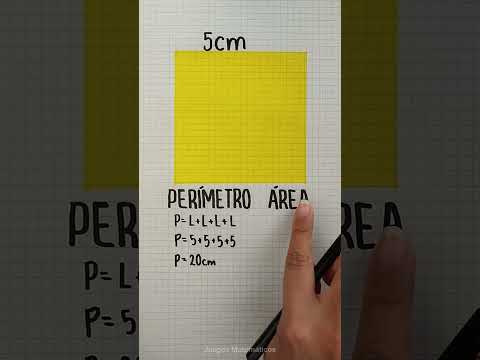 5cm
PERÍMETRO ÁREA
P= L+L+L+L
P= 5+5+5+5
P= 20cm
Juegos Matemáticos